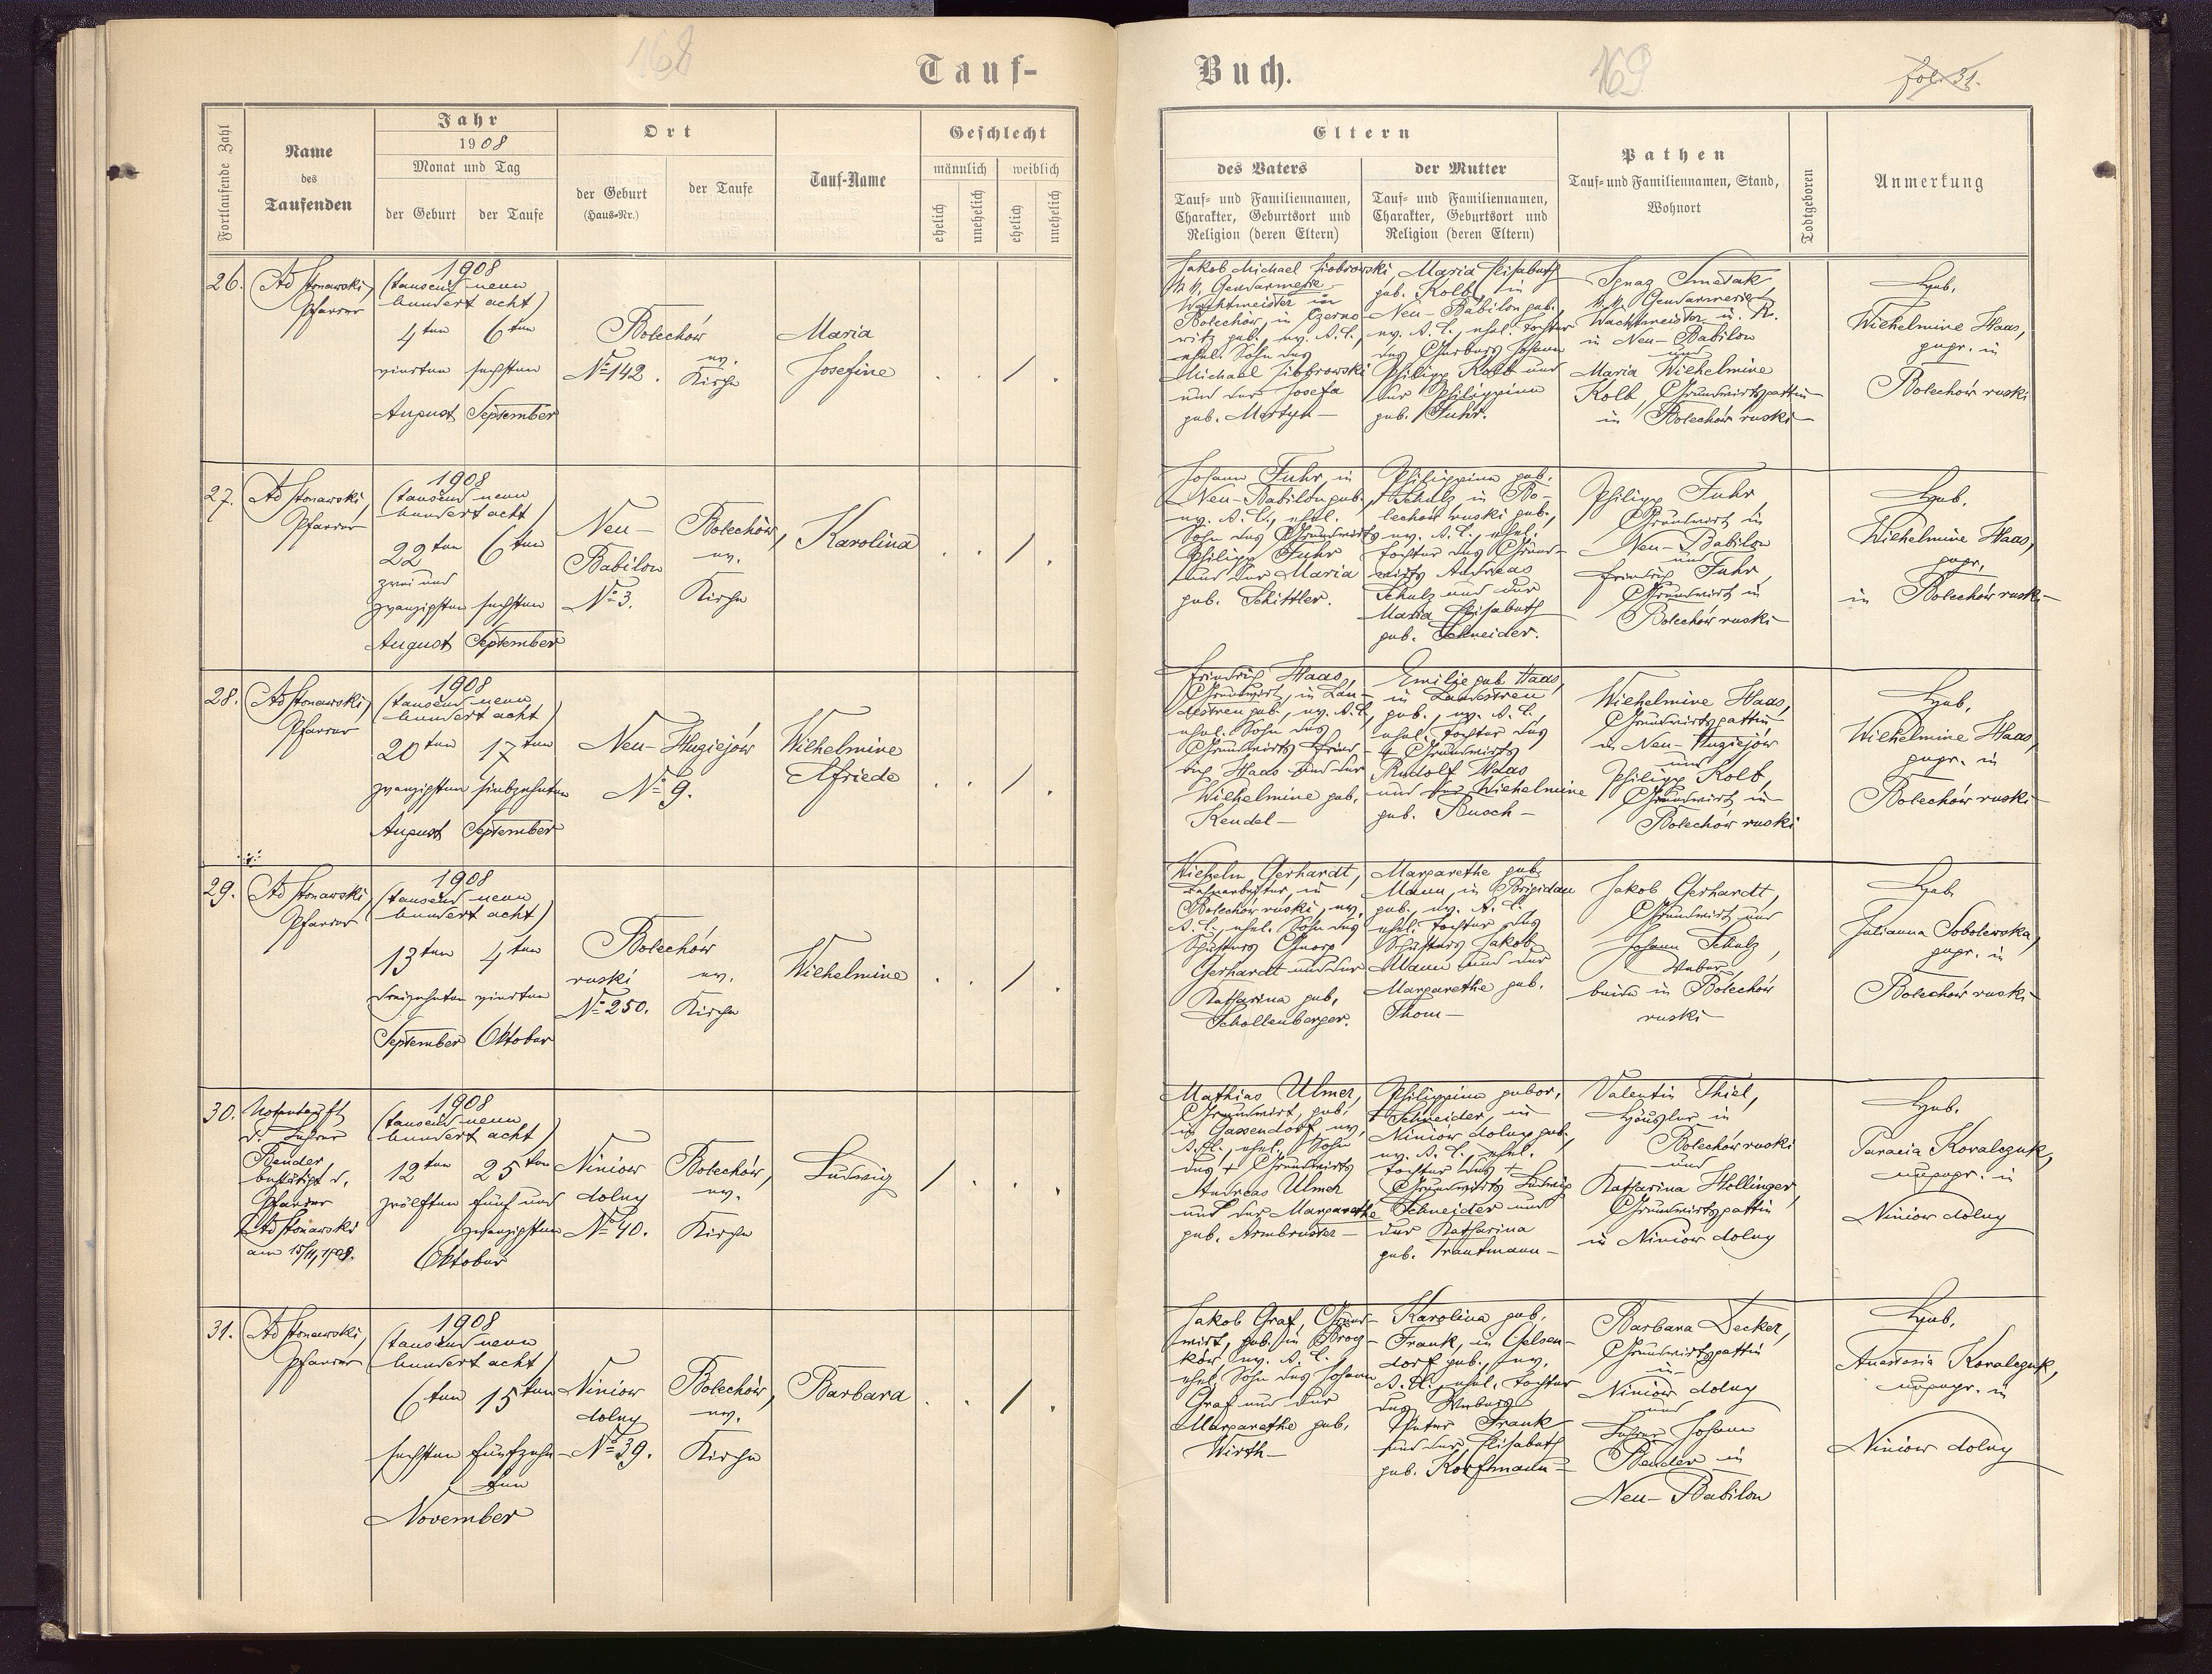 168
Tauf-
Fortlaufende Zahl
Name
des
Taufenden
Jahr
1908
Monat und Tag
der Geburt
der Taufe
Ort
der Geburt
(Haus-Nr.)
der Taufe
Tauf-Name
Geschlecht
männlich
weiblich
ehelich
unehelich
ehelich
unehelich
26.
Ad Stonawski,
Pfarrer
1908
(tausend neun
hundert acht)
4ten 6ten
vierten sechsten
August September
Bolechów
No 142.
ev.
Kirche
Maria
Josefine
. . / .
27.
Ad Stonawski,
Pfarrer
1908
(tausend neun
hundert acht)
22ten 6ten
zwei und
zwanzigsten sechsten
August September
Neu-
Babilon
No 3.
Bolechów,
ev.
Kirche
Karolina
. . / .
28.
Ad Stonawski,
Pfarrer
1908
(tausend neun
hundert acht)
20ten 17ten
zwanzigsten siebzehnten
August September
Neu-Hugiejów
No 9.
Wilhelmine
Elfriede
. . / .
29.
Ad Stonawski,
Pfarrer
1908
(tausend neun
hundert acht)
13ten 4ten
dreizehnten vierten
September Oktober
Bolechów
ruski
No 250.
ev.
Kirche
Wilhelmine
. . / .
30.
Notgetauft
d. Lehrer
Bender
bestätigt d.
Pfarrer
Ad Stonawski
am 15/11, 1908.
1908
(tausend neun
hundert acht)
12ten 25ten
zwölften fünf und
zwanzigsten
Oktober
Niniow
dolny
No 40.
Bolechów,
ev.
Kirche
Ludwig
/ . . .
31.
Ad Stonawski,
Pfarrer
1908
(tausend neun
hundert acht)
6ten 15ten
sechsten fünfzehn-
ten
November
Niniow
dolny
No 39.
Bolechów,
ev.
Kirche
Barbara
. . / .
Buch.
169
fol. 31.
Eltern
des Vaters
Tauf- und Familiennamen,
Charakter, Geburtsort und
Religion (deren Eltern)
der Mutter
Tauf- und Familiennamen,
Charakter, Geburtsort und
Religion (deren Eltern)
Pathen
Tauf- und Familiennamen, Stand,
Wohnort
Todtgeboren
Anmerkung
Jakob Michael
k.k. Gendarmerie
Wachtmeister in
Bolechów, in Czerno-
witz geb., ev. A.C.,
ehel. Sohn des
Michael
und der Josefa
geb. Martyn-
Maria Elisabeth
geb. Kolb, in
Neu-Babilon geb.,
ev. A.C., ehel. Tochter
des Gerbers Johann
Philipp Kolb und
der Philippina
geb. Fuhr.
Ignaz Smetak
k.k. Gendarmerie
Wachtmeister
in Neu-Babilon
und
Maria Wilhelmine
Kolb, Grundwirtsgattin
in Bolechów ruski-
Heb.
Wilhelmine Haas,
gepr. in
Bolechów ruski
Johann Fuhr, in
Neu-Babilon geb.,
ev. A.C., ehel.
Sohn des Grundwirts
Philipp Fuhr
und der Maria
geb. Schittler.
Philippina geb.
Schulz in Bo-
lechów ruski geb.,
ev. A.C., ehel.
Tochter des Grund-
wirts Andreas
Schulz und der
Maria Elisabeth
geb. Schneider.
Philipp Fuhr,
Grundwirt in
Neu-Babilon
und
Friedrich Fuhr,
Grundwirt in
Bolechów ruski-
Heb.
Wilhelmine Haas,
gepr.
in Bolechów ruski-
Friedrich Haas,
Grundwirt, in Lan-
destreu geb., ev. A.C.,
ehel. Sohn des
Grundwirts Fried-
rich Haas und der
Wilhelmine geb.
Kendel-
Emilie geb. Haas,
in Landestreu
geb., ev. A.C.,
ehel. Tochter des
+ Grundwirts
Rudolf Haas
und der Wilhelmine
geb. Busch-
Wilhelmine Haas,
Grundwirtsgattin
in Neu-Hugiejów
und
Philipp Kolb,
Grundwirt in
Bolechów ruski
Heb.
Wilhelmine Haas,
gepr. in
Bolechów ruski-
Wilhelm Gerhardt,
in
Bolechów ruski, ev.
A.C., ehel. Sohn des
Schusters Georg
Gerhardt und der
Katharina geb.
Schollenberger.
Margarethe geb.
Mann, in Brigidau
geb., ev. A.C.
ehel. Tochter des
Schusters Jakob
Mann und der
Margarethe geb.
Thom-
Jakob Gerhardt,
Grundwirt und
Johann Schulz,
Weber,
beide in Bolechów
ruski-
Heb.
Julianna Sobolewska,
gepr. in
Bolechów ruski-
Mathias Ulmer,
Grundwirt, geb.
in Gassendorf, ev.
A.C., ehel. Sohn
des + Grundwirts
Andreas Ulmer
und der Margarethe
geb. Armbruster-
Philippina gebor.
Schneider, in
Niniów dolny geb.,
ev. A.C., ehel.
Tochter des +
Grundwirts Ludwig
Schneider und
der Katharina
geb. Trautmann-
Valentin Thiel,
Häusler in
Bolechów ruski
und
Katharina Hollinger,
Grundwirtsgattin
in Niniów dolny
Heb.
Paracia Kowalczuk,
ungepr. in
Niniow dolny
Jakob Graf, Grund-
wirt, geb. in Brocz-
ków, ev. A.C.
ehel. Sohn des Johann
Graf und der
Margarethe geb.
Wirth-
Karolina geb.
Frank, in Gelsen-
dorf geb., ev.
A.C., ehel. Tochter
des Webers
Peter Frank
und der Elisabeth
geb. Korfmann-
Barbara Decker,
Grundwirtsgattin
in
Niniow dolny
und
Lehrer Johann
Bender in
Neu-Babilon
Heb.
Anastasia Kowalczuk,
ungepr. in
Niniow dolny